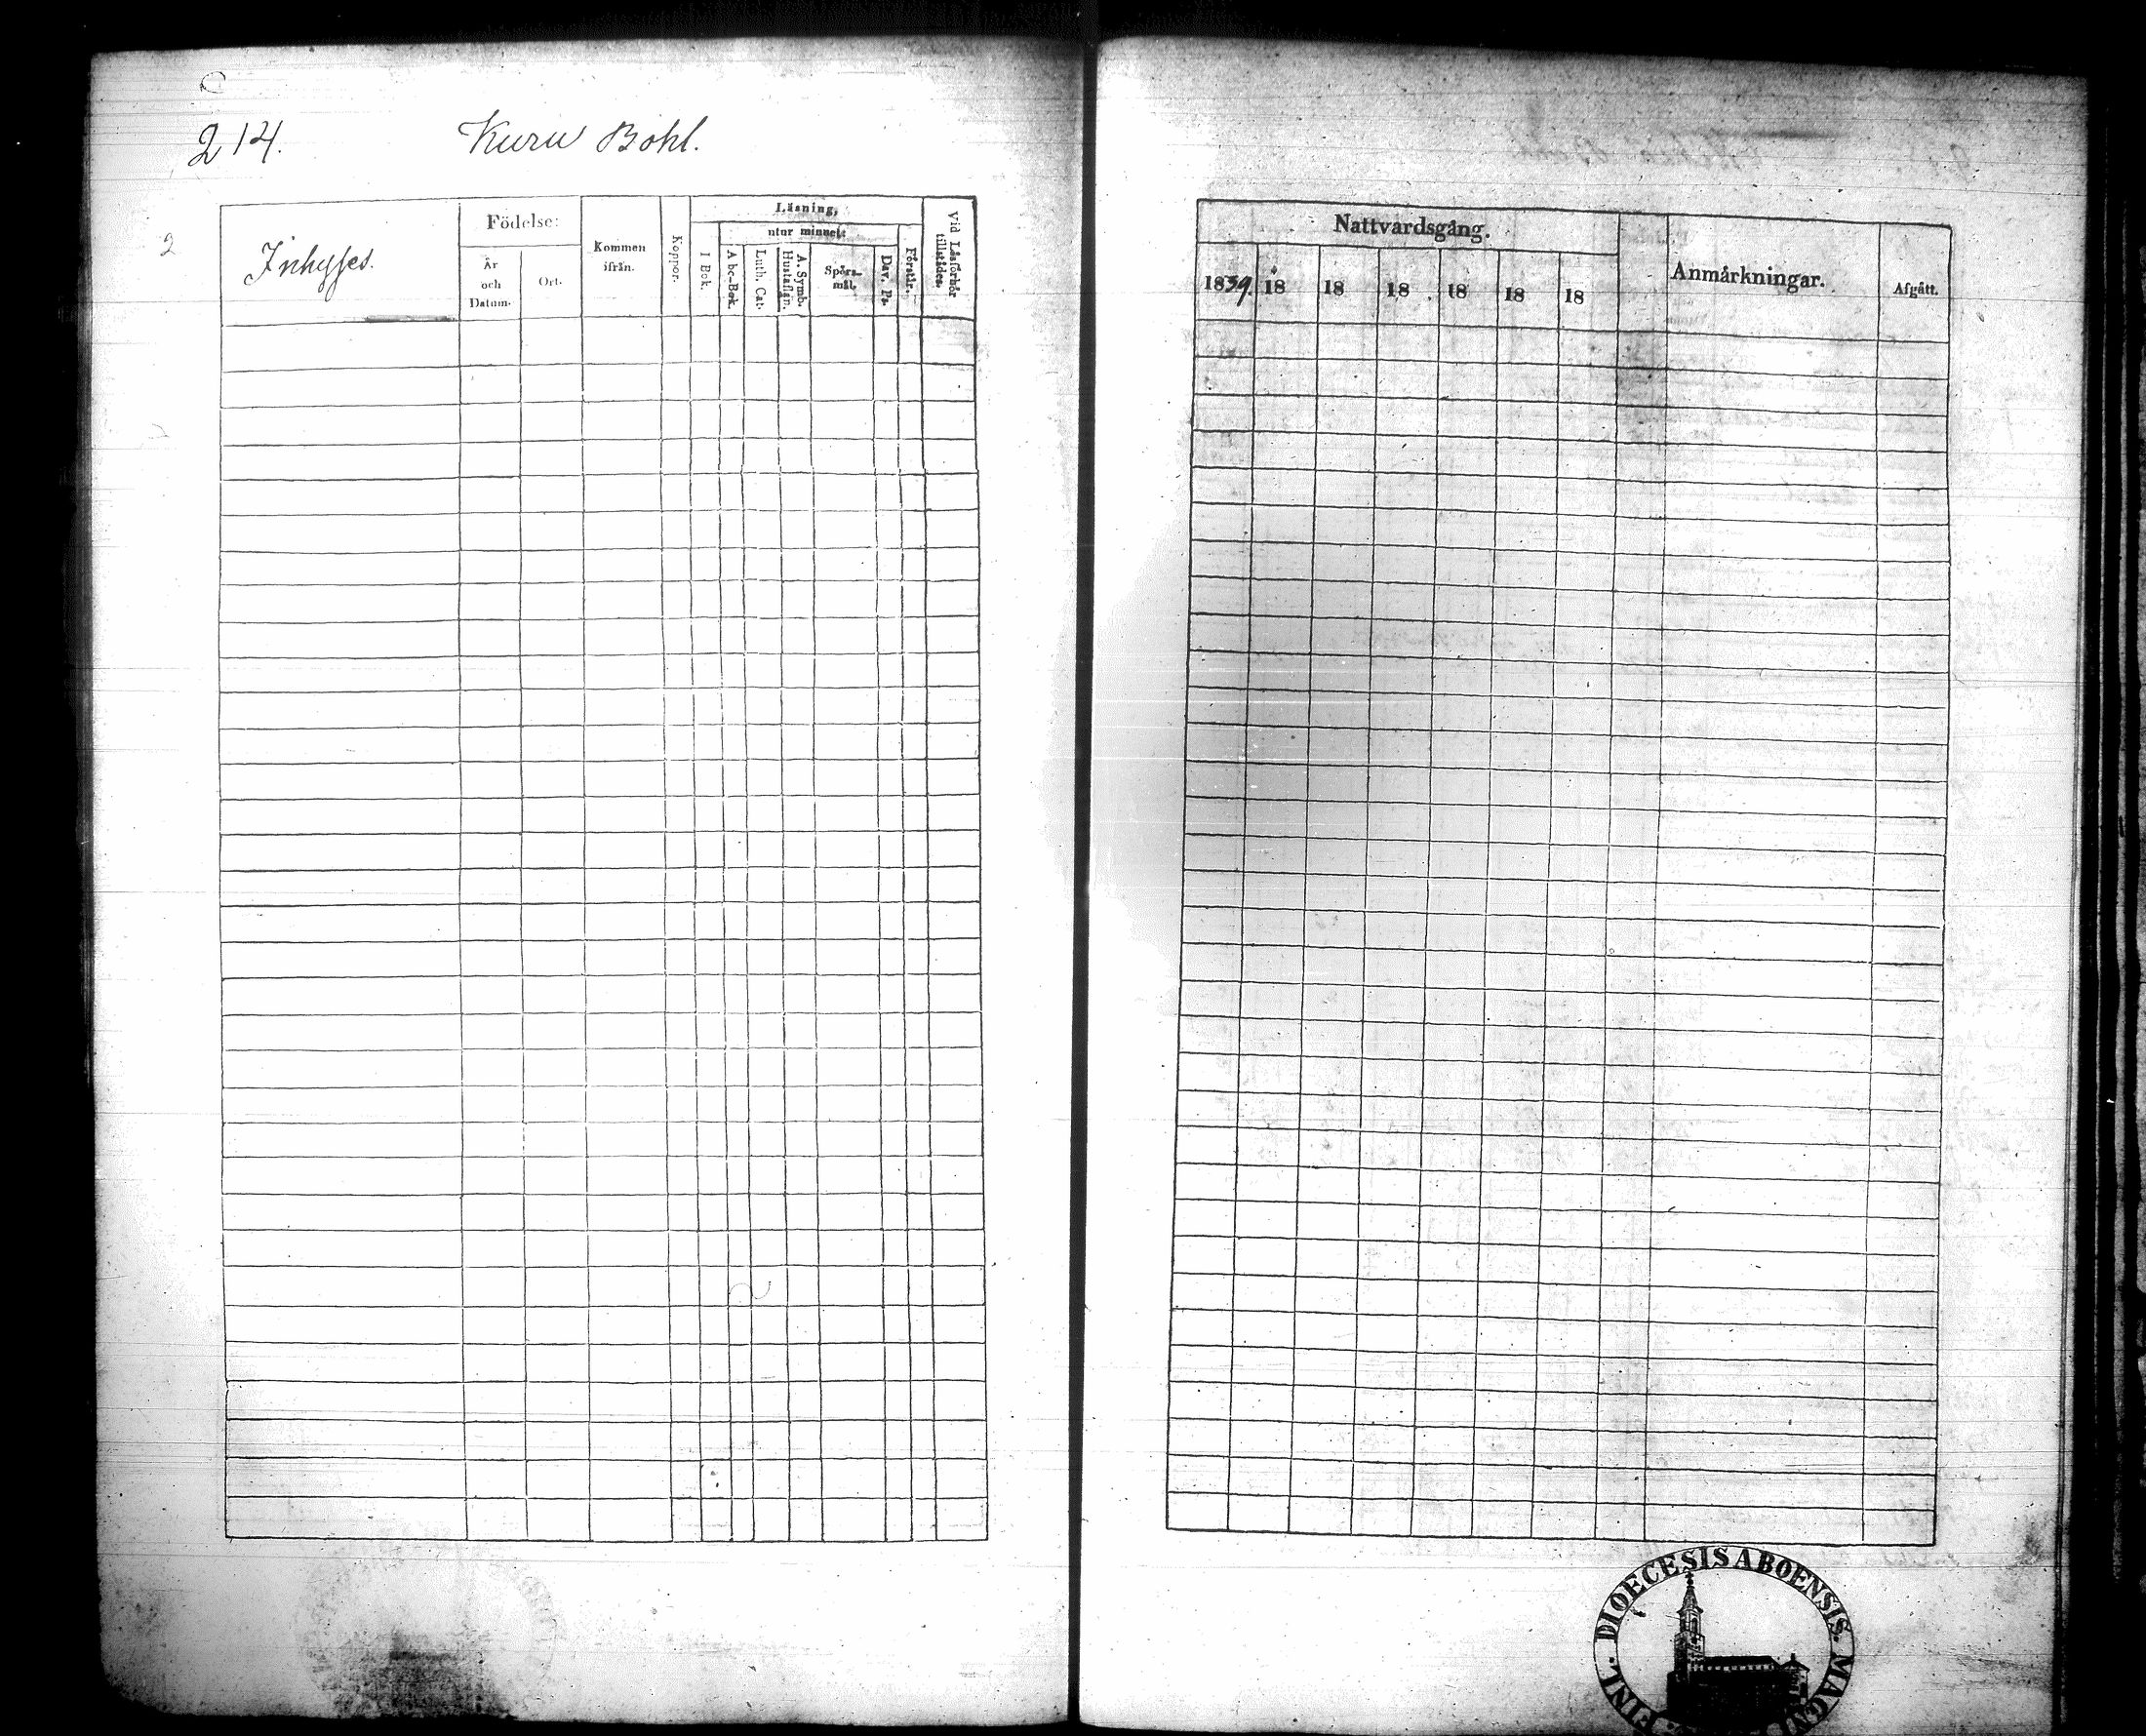 214.
Kuru Bohl.
Inhyses.
Födelse:
År
och
Datum.
Ort.
Kommen
ifrån.
Koppor.
Läsning,
I Bok.
utur minnet:
A bc-Bok.
Luth. Cat.
A. Symb.
Hustaflan.
Spörs-
mål.
Dav. Ps.
Förstår.
vid Läsförhör
tillstädes.
Nattvardsgång.
1839. 18 18 18 18 18 18
Anmärkningar.
Afgått.
FINL. DIOECESIS ABOENSIS. MAGN